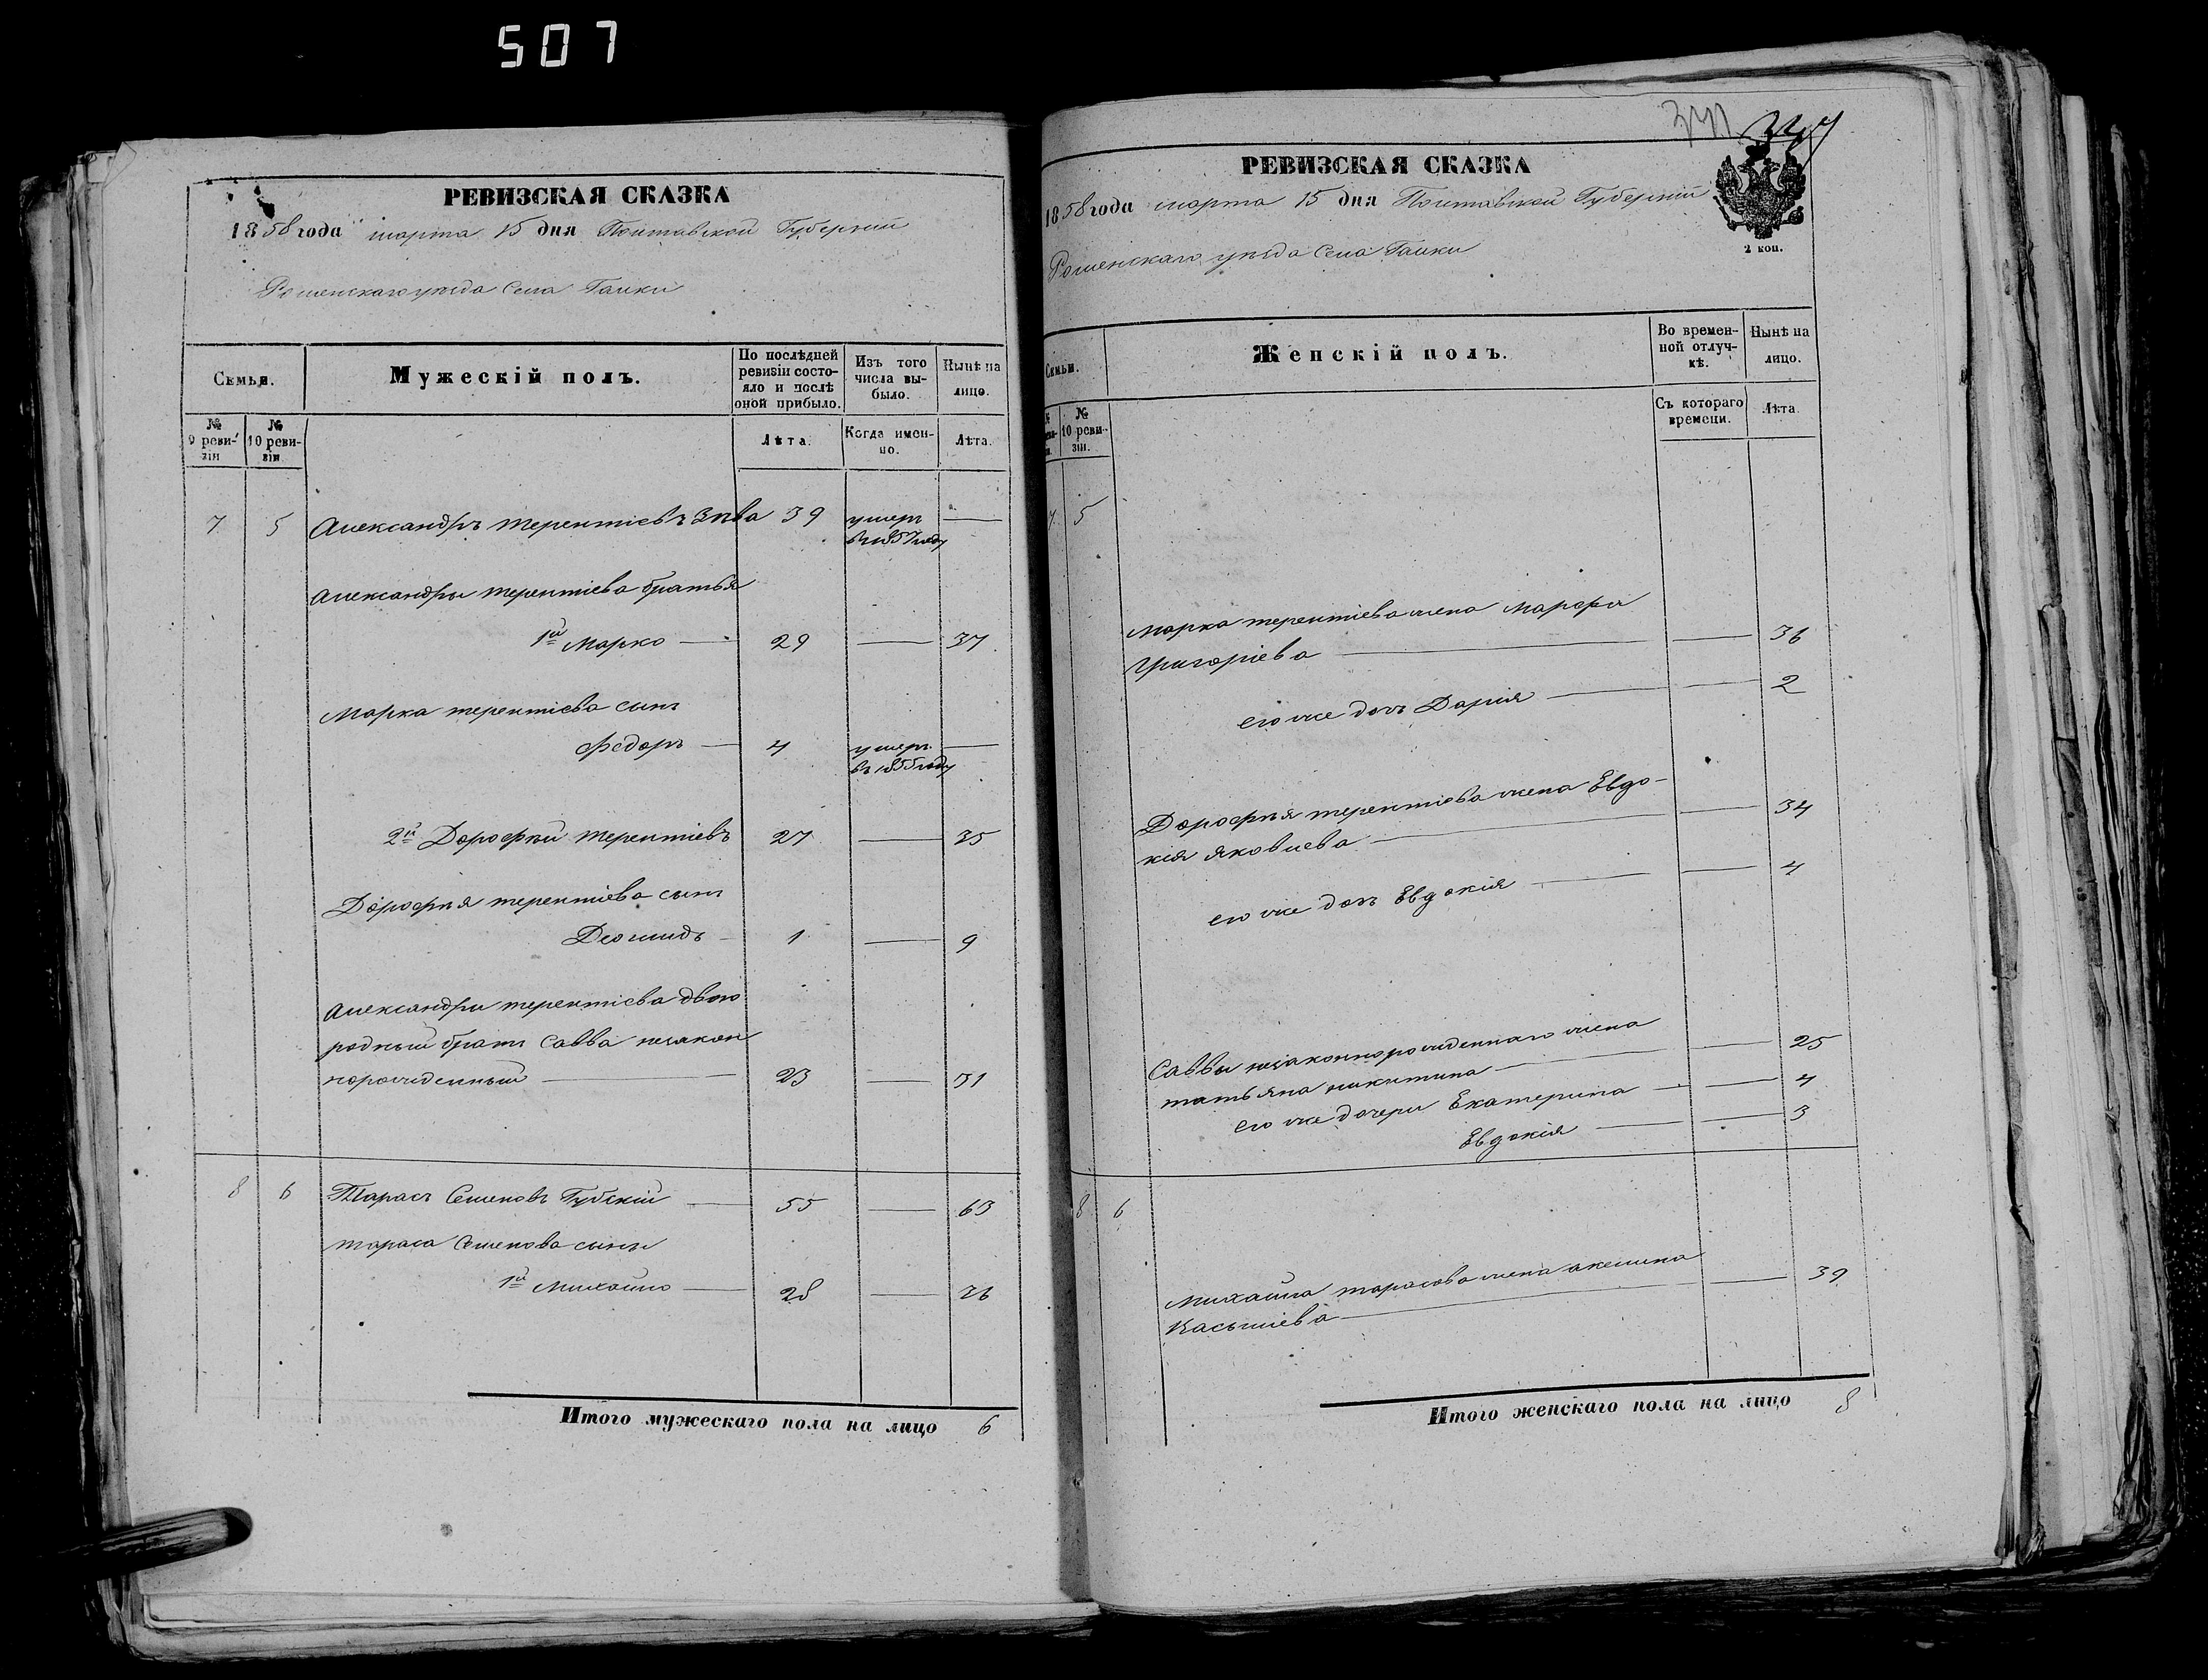 507
РЕВИЗСКАЯ СКАЗКА
1858 года марта 15 дня Полтавской Губернiи
Роменскаго уѣзда Села Галки
Семьи.
Мужескій полъ.
По послѣдней ревизіи состояло и послѣ оной прибыло.
Изъ того числа выбыло.
Нынѣ на лицо.
№ 9 ревизіи
№ 10 ревизіи
Лѣта.
Когда именно.
Лѣта.
7 5 Александръ терентіевъ Зѣва 39 умеръ —
въ 1857 году
Александры терентіева братья
1й Марко — 29 — 37
Марка терентіева сынъ
Федоръ — 4 умеръ —
въ 1855 году
2й Дорофѣй терентіевъ 27 — 35
Дорофѣя терентіева сынъ
Леонидъ — 1 — 9
Александры терентіева двою
родный братъ Савва незакон
норожденный — 23 — 31
8 6 Тарасъ Семеновъ Губскій — 55 — 63
тараса Семенова сынъ
1й Михайло — 28 — 36
Итого мужескаго пола на лицо 6
РЕВИЗСКАЯ СКАЗКА
1858 года марта 15 дня Полтавской Губерніи
2 коп.
Роменскаго уѣзда Села Галки
Семьи.
Женскій полъ.
Во временной отлучкѣ.
Нынѣ на лицо.
№ 10 ревизіи.
Съ котораго времени.
Лѣта.
7 5
Марка терентіева жена Марфа
Григоріева — — 36
его же дочь Дарія — — 2
Дорофѣя терентіева жена Евдо-
кія яковлева — — 34
его же дочь Евдокія — — 4
Саввы незаконнорожденнаго жена
татьяна никитина — — 25
его же дочери Екатерина — — 4
Евдокія — — 3
8 6
Михайла тарасова жена акелина
Касьяніева — — 39
Итого женскаго пола на лицо 8